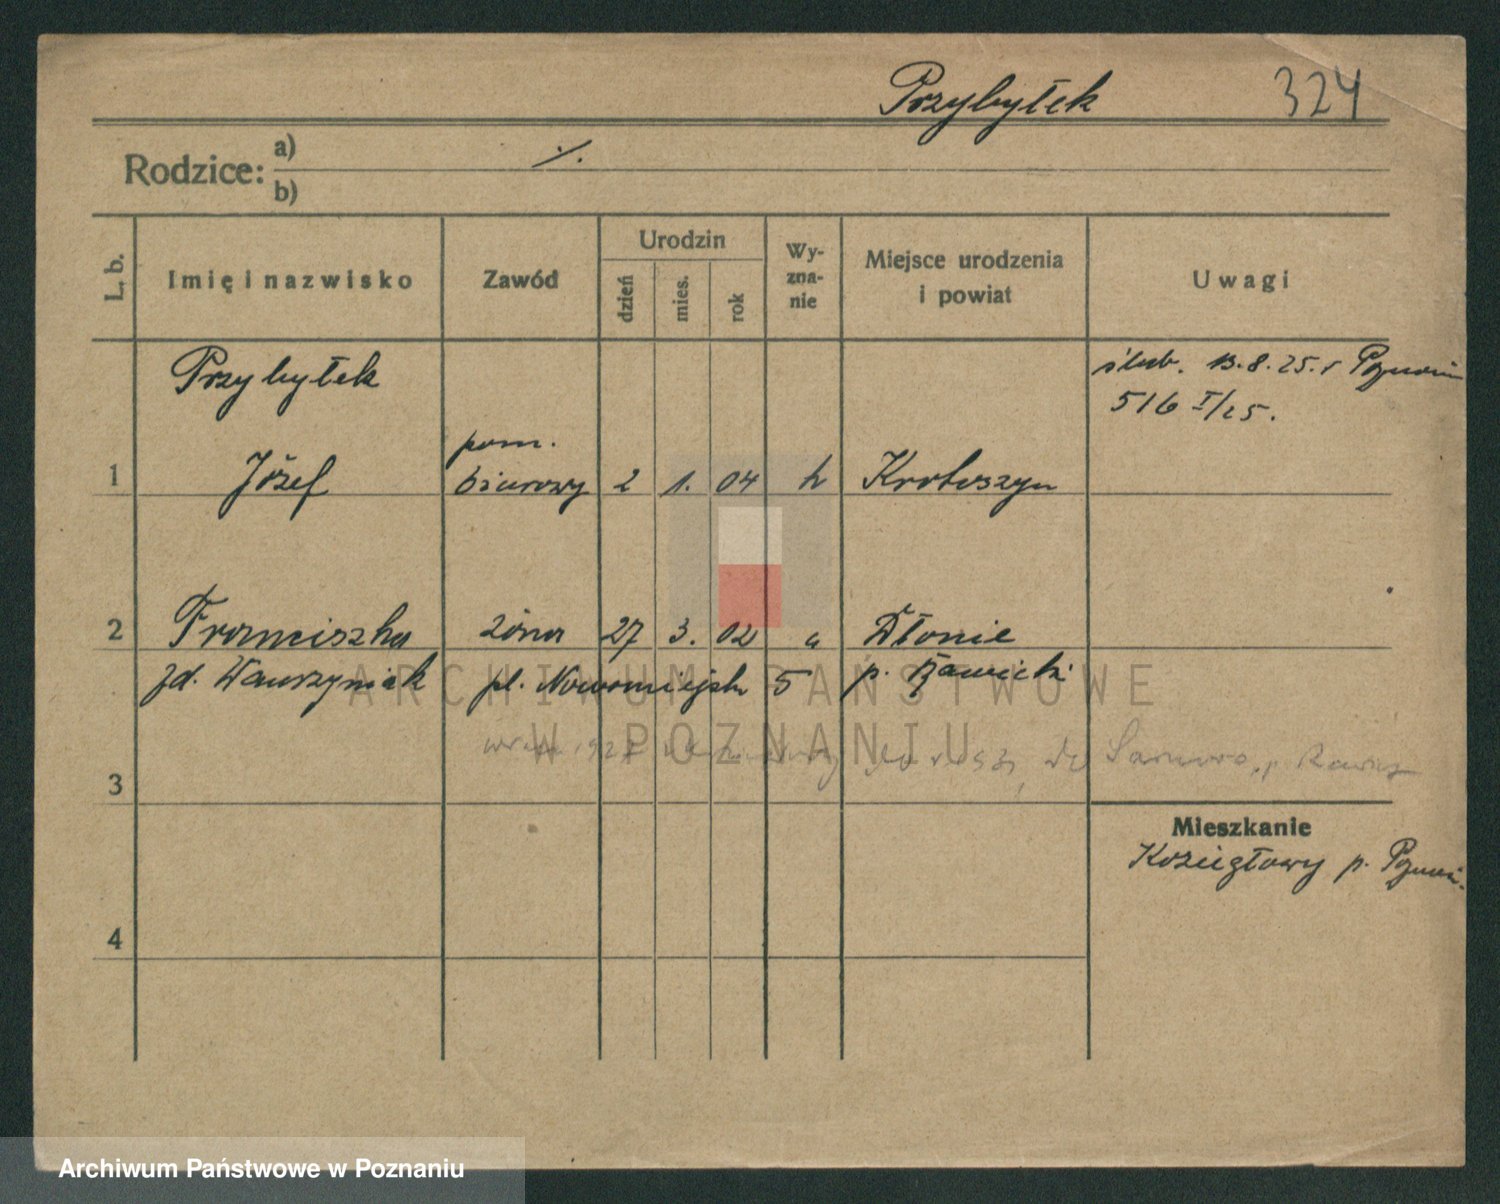 Przybyłek 324
Rodzice: a) ·/.
b)
L. b. Imię i nazwisko Zawód Urodzin dzień mies. rok Wy-zna-nie Miejsce urodzenia i powiat Uwagi
Przybyłek ślub. 13.8.25. Poznań
516 I/25.
pom.
1 Józef biurowy 2 1. 04 k Krotoszyn
2 Franciszka żona 27 3. 02 " Dłonie
zd. Wawrzyniak pl. Nowomiejski 5 p. Rawicki
ARCHIWUM PAŃSTWOWE
W POZNANIU
do Sarnowo, p Rawicz
3
Mieszkanie
Koziegłowy p. Poznań.
4
Archiwum Państwowe w Poznaniu